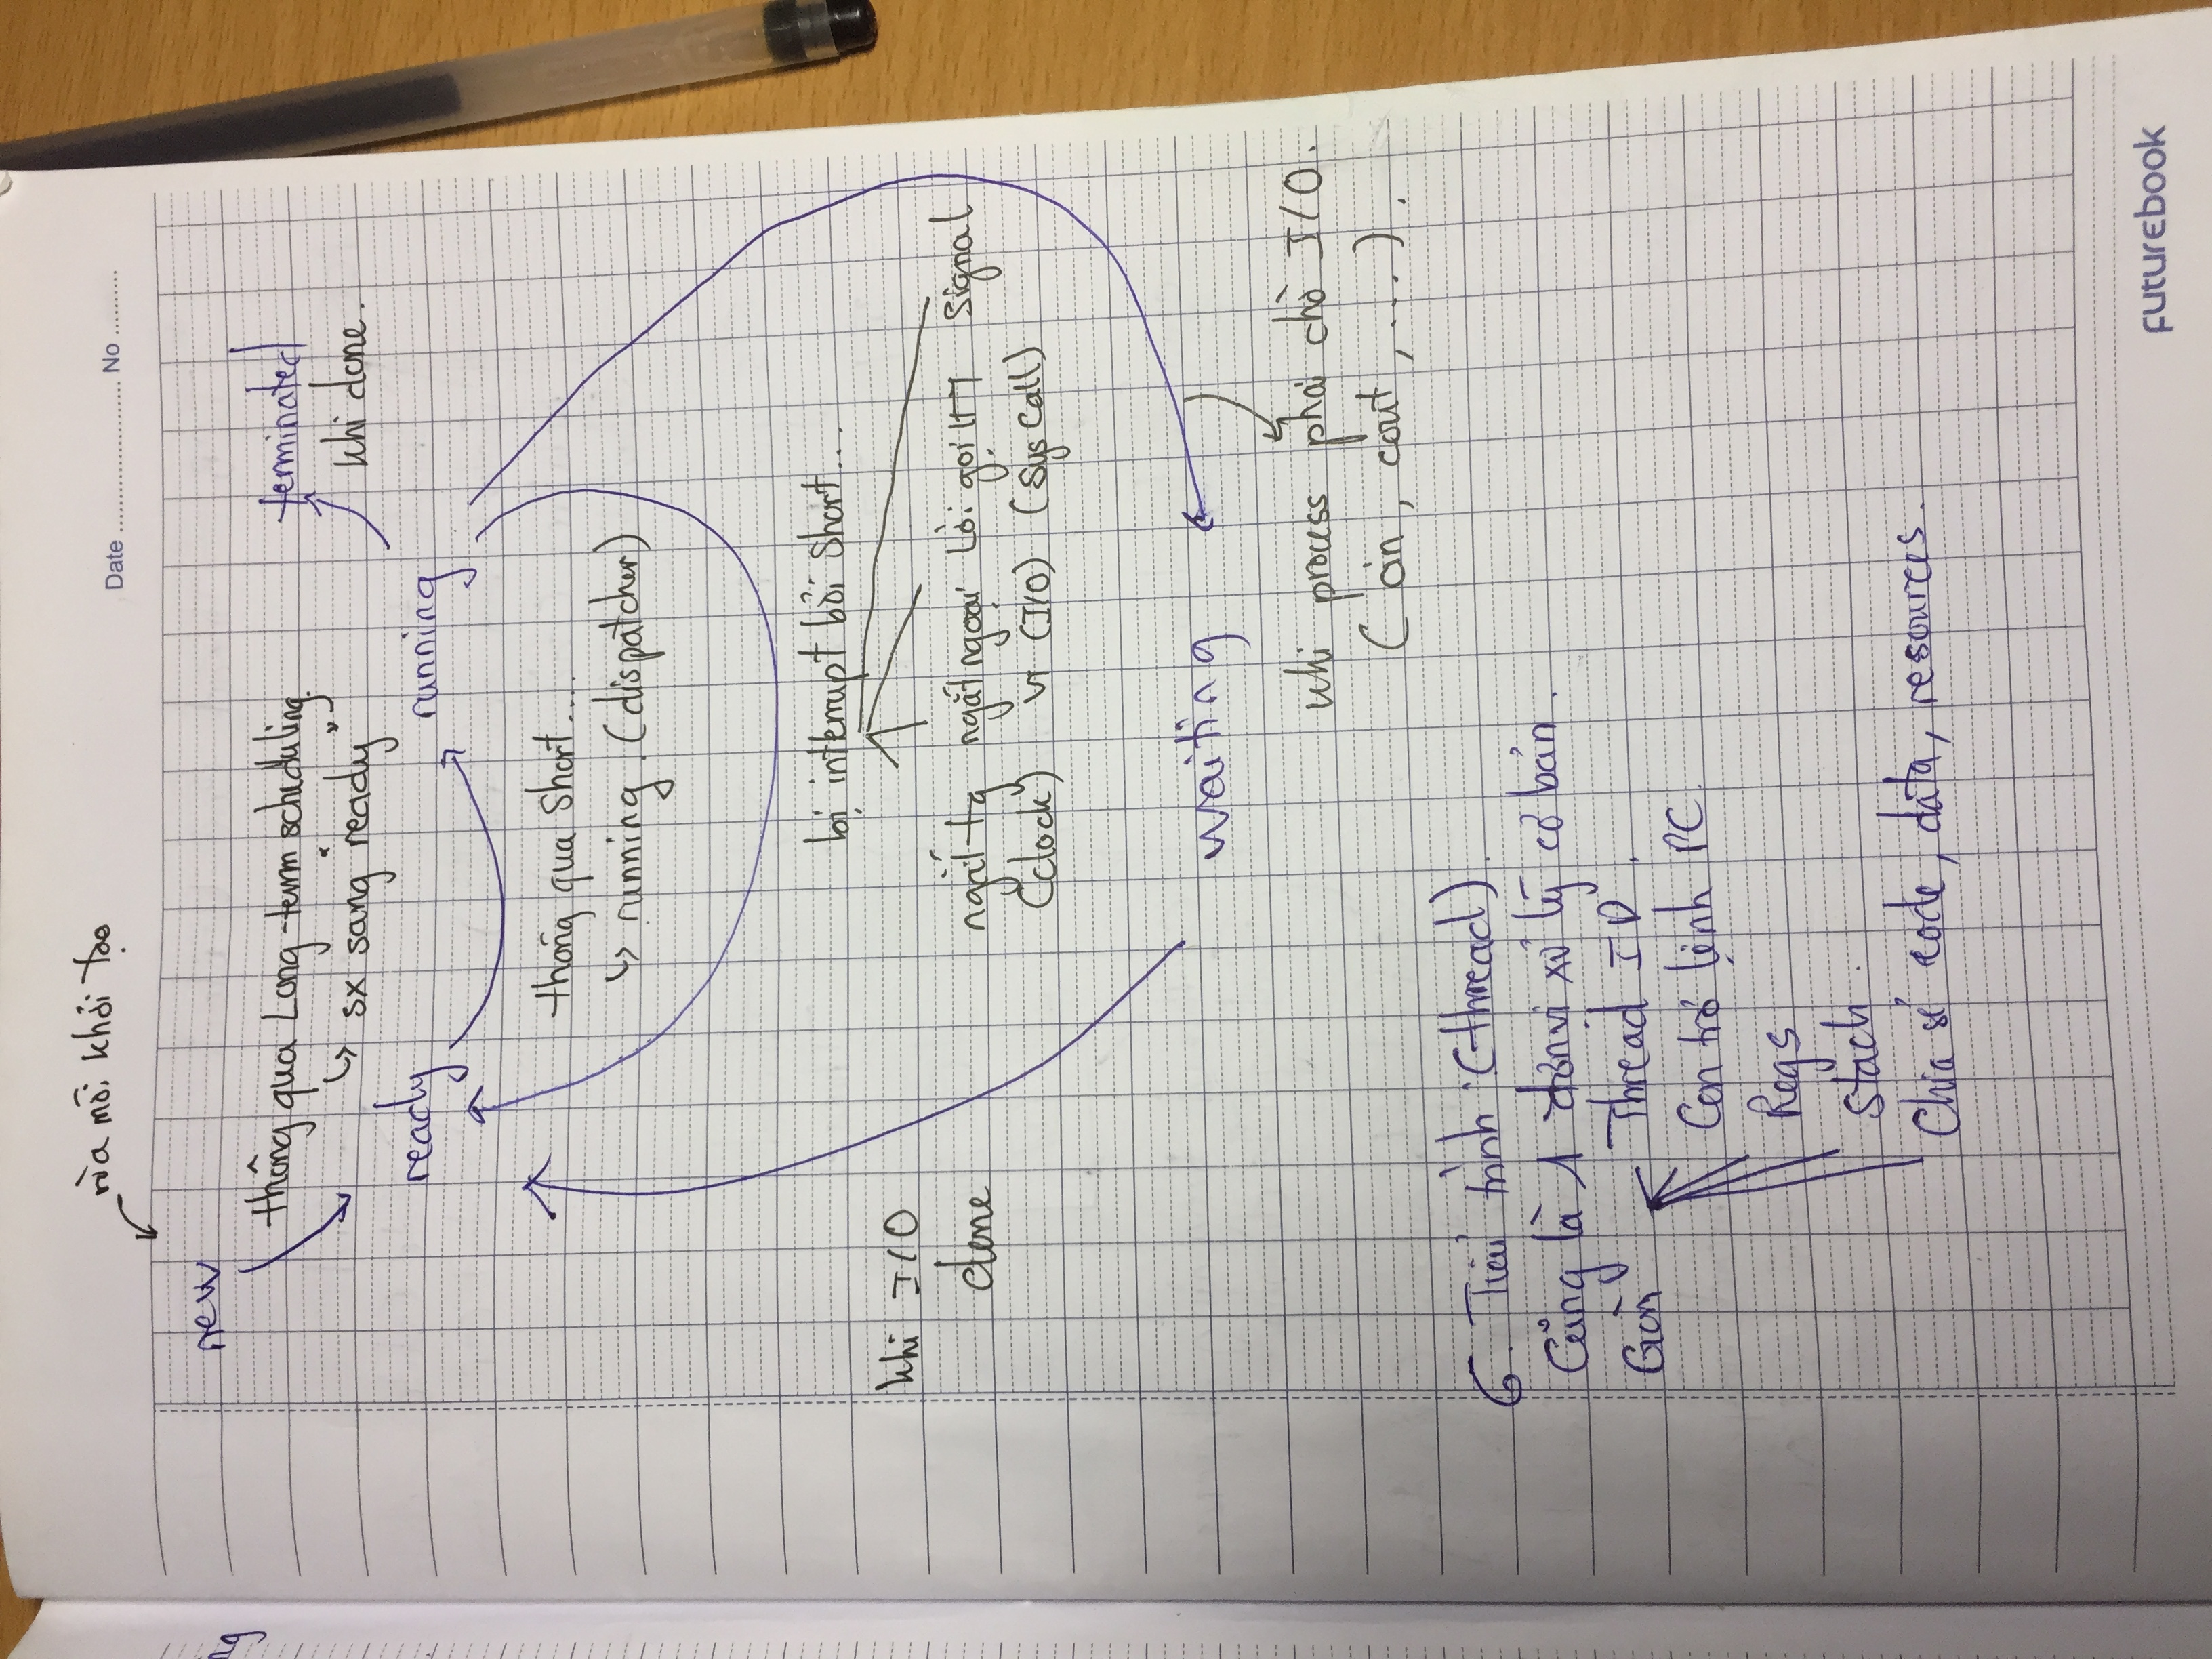 vừa mới khởi tạo
Date ........................ No ..........
new
thông qua Long-term scheduling.
↳ sx sang "ready"
terminated
khi done.
ready
running
thông qua Short....
↳ running. (dispatcher)
bị interrupt bởi Short...
khi I/O
done
ngắt tg ngắt ngoại lời gọi HT Signal
(clock) vi (I/O) (Sys Call)
waiting
khi process phải chờ I/O.
(cin, cout, ...).
6. Tiểu trình (thread).
Cũng là 1 đơn vị xử lý cơ bản.
Gồm
Thread ID.
Con trỏ lệnh PC.
Regs
Stack.
Chia sẻ code, data, resources.
ng
FUTUREBOOK